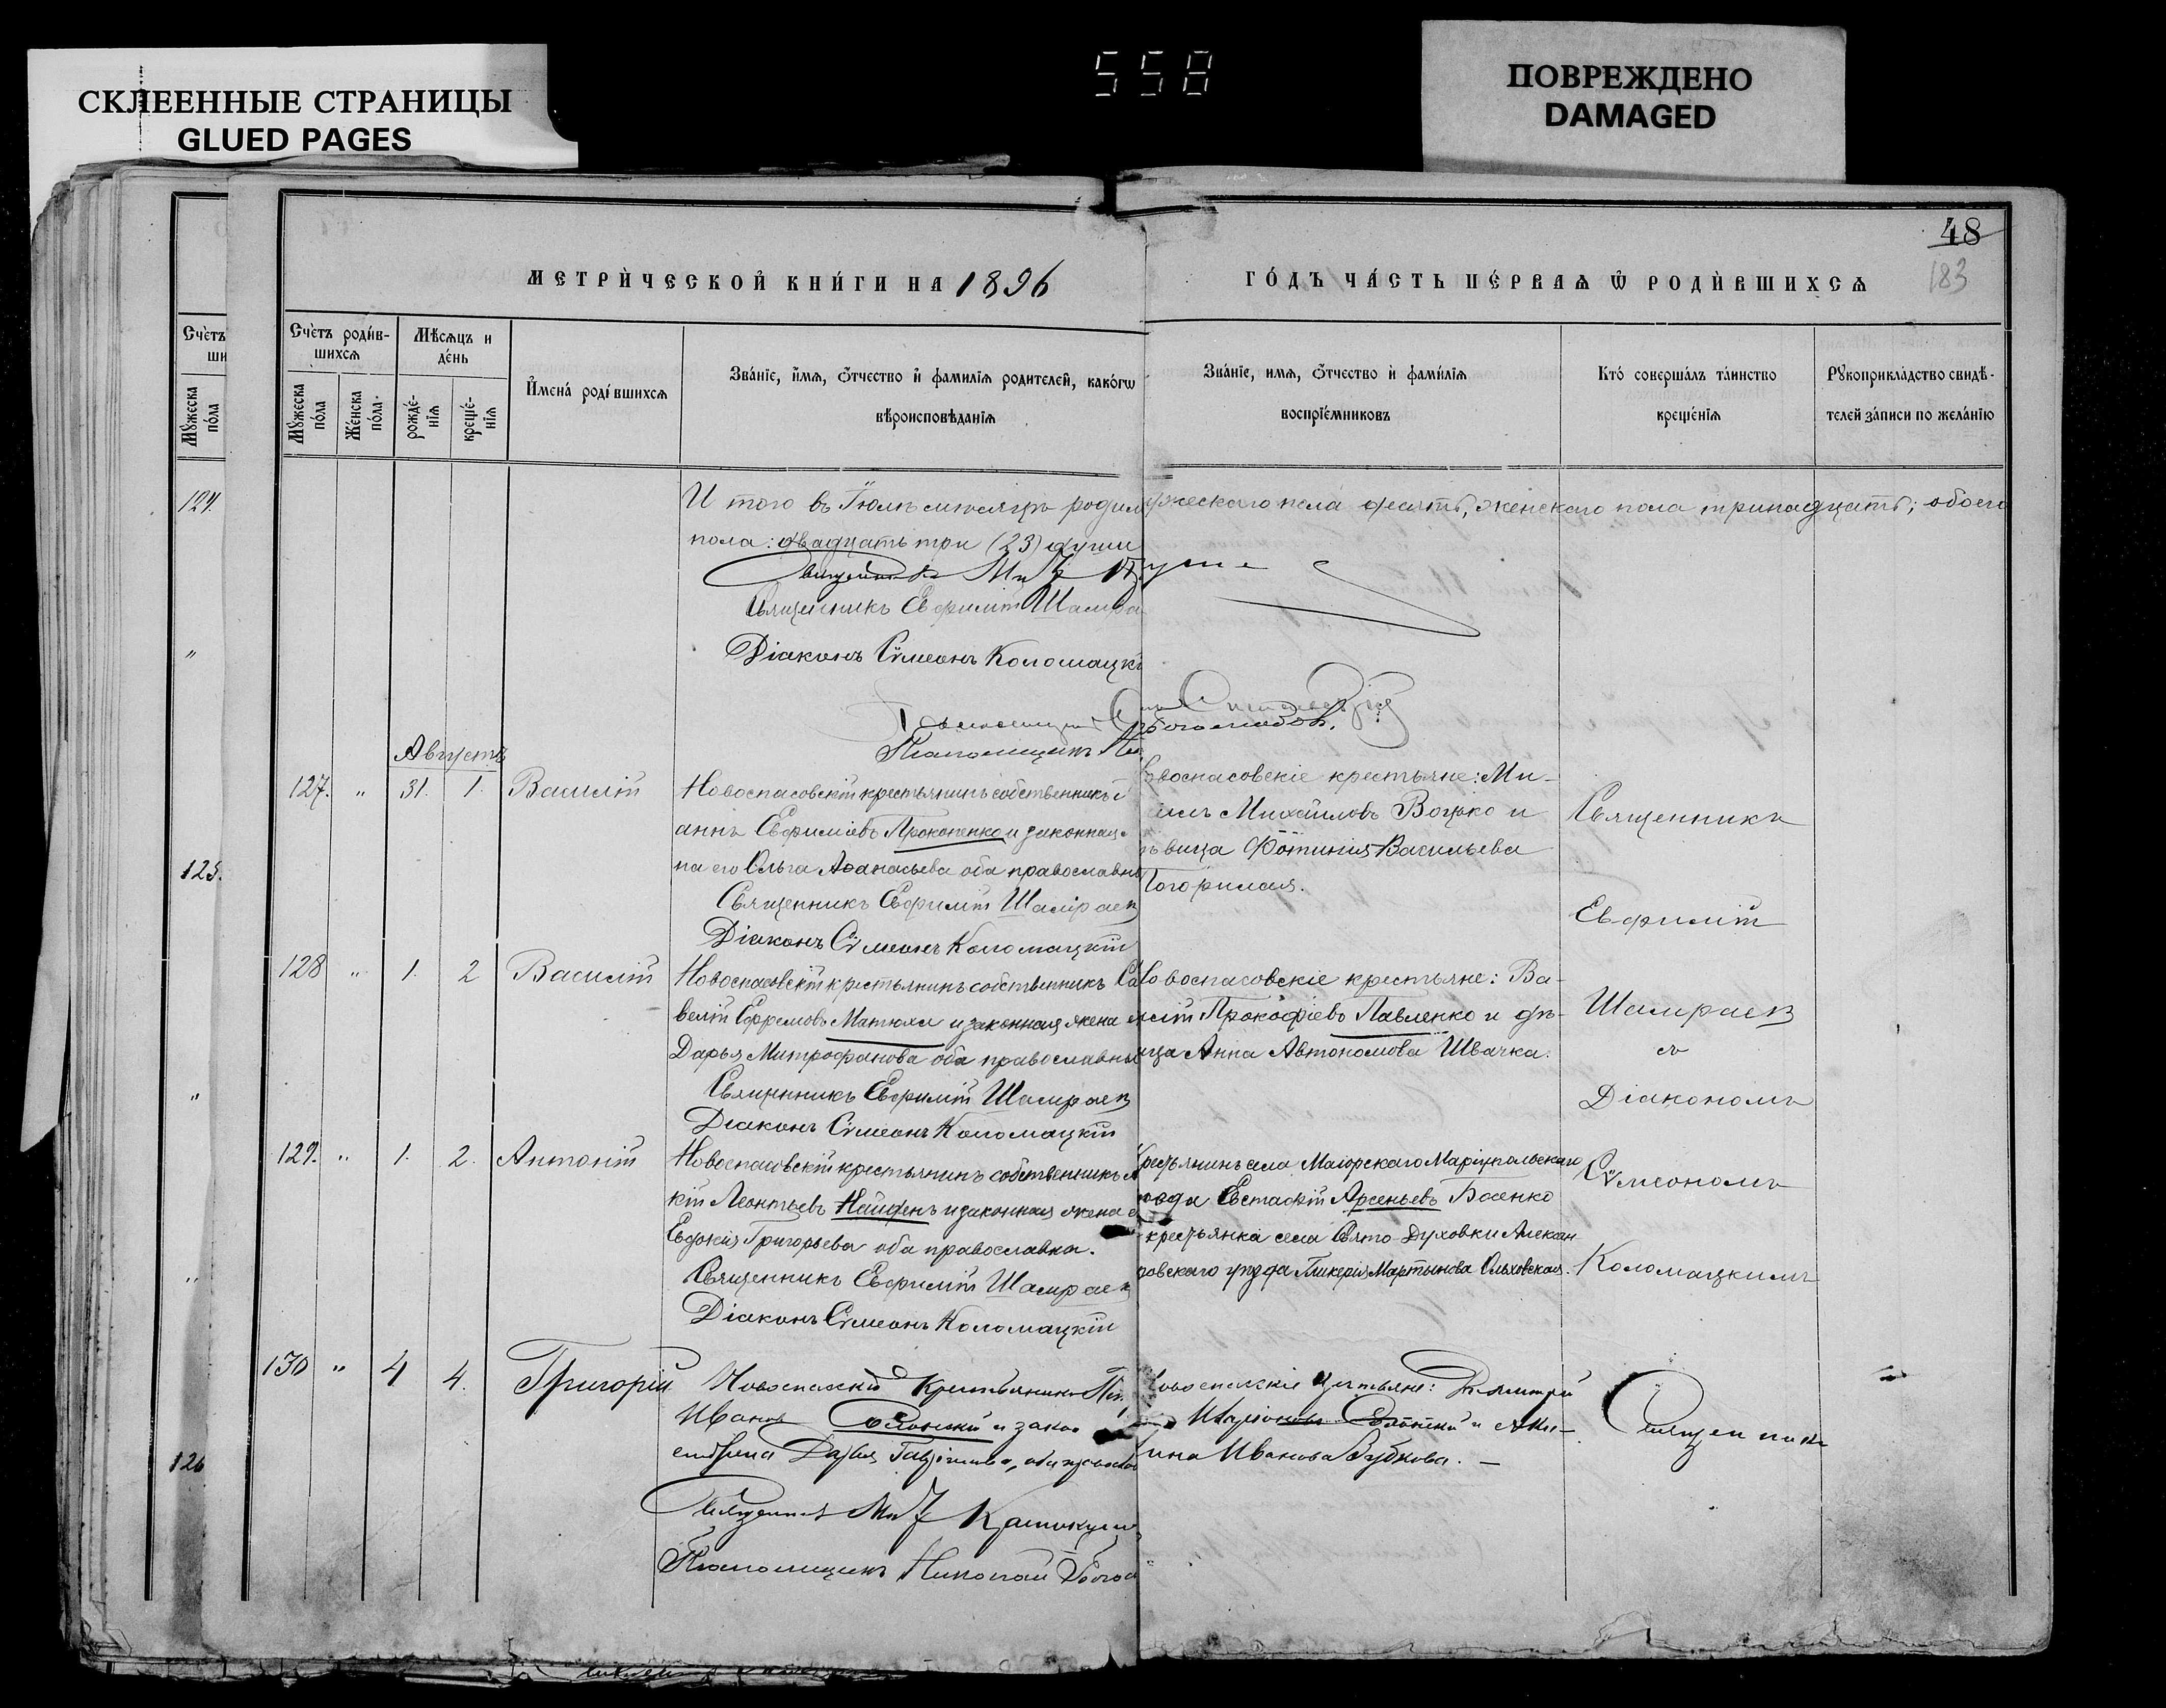 СКЛЕЕННЫЕ СТРАНИЦЫ
GLUED PAGES
558
ПОВРЕЖДЕНО
DAMAGED
48
183
МЕТРИ́ЧЕСКОЙ КНИ́ГИ НА 1896
ГО́ДЪ ЧА́СТЬ ПЕ́РВАѦ Ѿ РОДИ́ВШИХСѦ
Счетъ
ши
Мꙋжеска по́ла
Счетъ роди́в-
шихсѧ
Мѣсѧцъ и
де́нь
Мꙋжеска по́ла
Же́нска по́ла
рожде́-нїѧ
креще́-нїѧ
И҆мена́ роди́вшихсѧ
Зва́нїе, и҆́мѧ, ѻ҆́тчество и҆ фамилїѧ родителей, како́гѡ
вѣроисповѣданїѧ
Зва́нїе, имѧ, ѻ҆́тчество и҆ фами́лїѧ
воспрїе́мниковъ
Кто́ соверша́лъ та́инство
креще́нїѧ
Рꙋкоприкла́дство свидѣ-
телей за́писи по жела́нїю
124.
И того въ Іюлѣ мѣсяцѣ родил
ужескаго пола десять, женскаго пола тринадцать; обоего
пола: двадцать три (23) души
Священникъ
Священникъ Евфимій Шамра
Діаконъ Сѵмеонъ Коломацкі
Псаломщикъ
Августъ
127. " 31. 1. Василій
Новоспасовскій крестьянинъ собственникъ
аннъ Евфиміевъ Прокопенко и законная
на его Ольга Аѳанасьева оба православн
Священникъ Евфимій Шамраев
Діаконъ Сѵмеонъ Коломацкій
воспасовскіе крестьяне: Ми-
илъ Михайловъ Воцко и
вица Фотинія Васильева
Погорилая.
Священникъ
Евфимій
Шамраев
съ
Діакономъ
Сѵмеономъ
Коломацкимъ
125.
128 " 1. 2 Василій
Новоспасовскій крестьянинъ собственникъ Са
велій Ефремовъ Матюха и законная жена
Дарья Митрофанова оба православны
Священникъ Евфимій Шамраев
Діаконъ Сѵмеонъ Коломацкій
овоспасовскіе крестьяне: Ва-
силій Прокофіевъ Павленко и дѣ-
ица Анна Автономова Швачка.
129. " 1. 2. Антоній
Новоспасовскій крестьянинъ собственникъ
кій Леонтьевъ Найденъ и законная жена
Евдокія Григорьева оба православна.
Священникъ Евфимій Шамраев
Діаконъ Сѵмеонъ Коломацкій
Крестьянинъ села Маіорскаго Маріупольскаго
уѣзда Евстафій Арсеньевъ Боенко
крестьянка села Свято-Духовки Алексан
ровскаго уѣзда Гликерія Мартынова Ольховская.
130 " 4 4. Григорій
Новоспасскій Крестьянинъ
Иванов и закон
Дарья, оба православ
Священникъ
Псаломщикъ Николай Богос
овоспасскіе крестьяне: Димитрій
и Аки-
лина Иванова Зубкова.
Священникъ
126